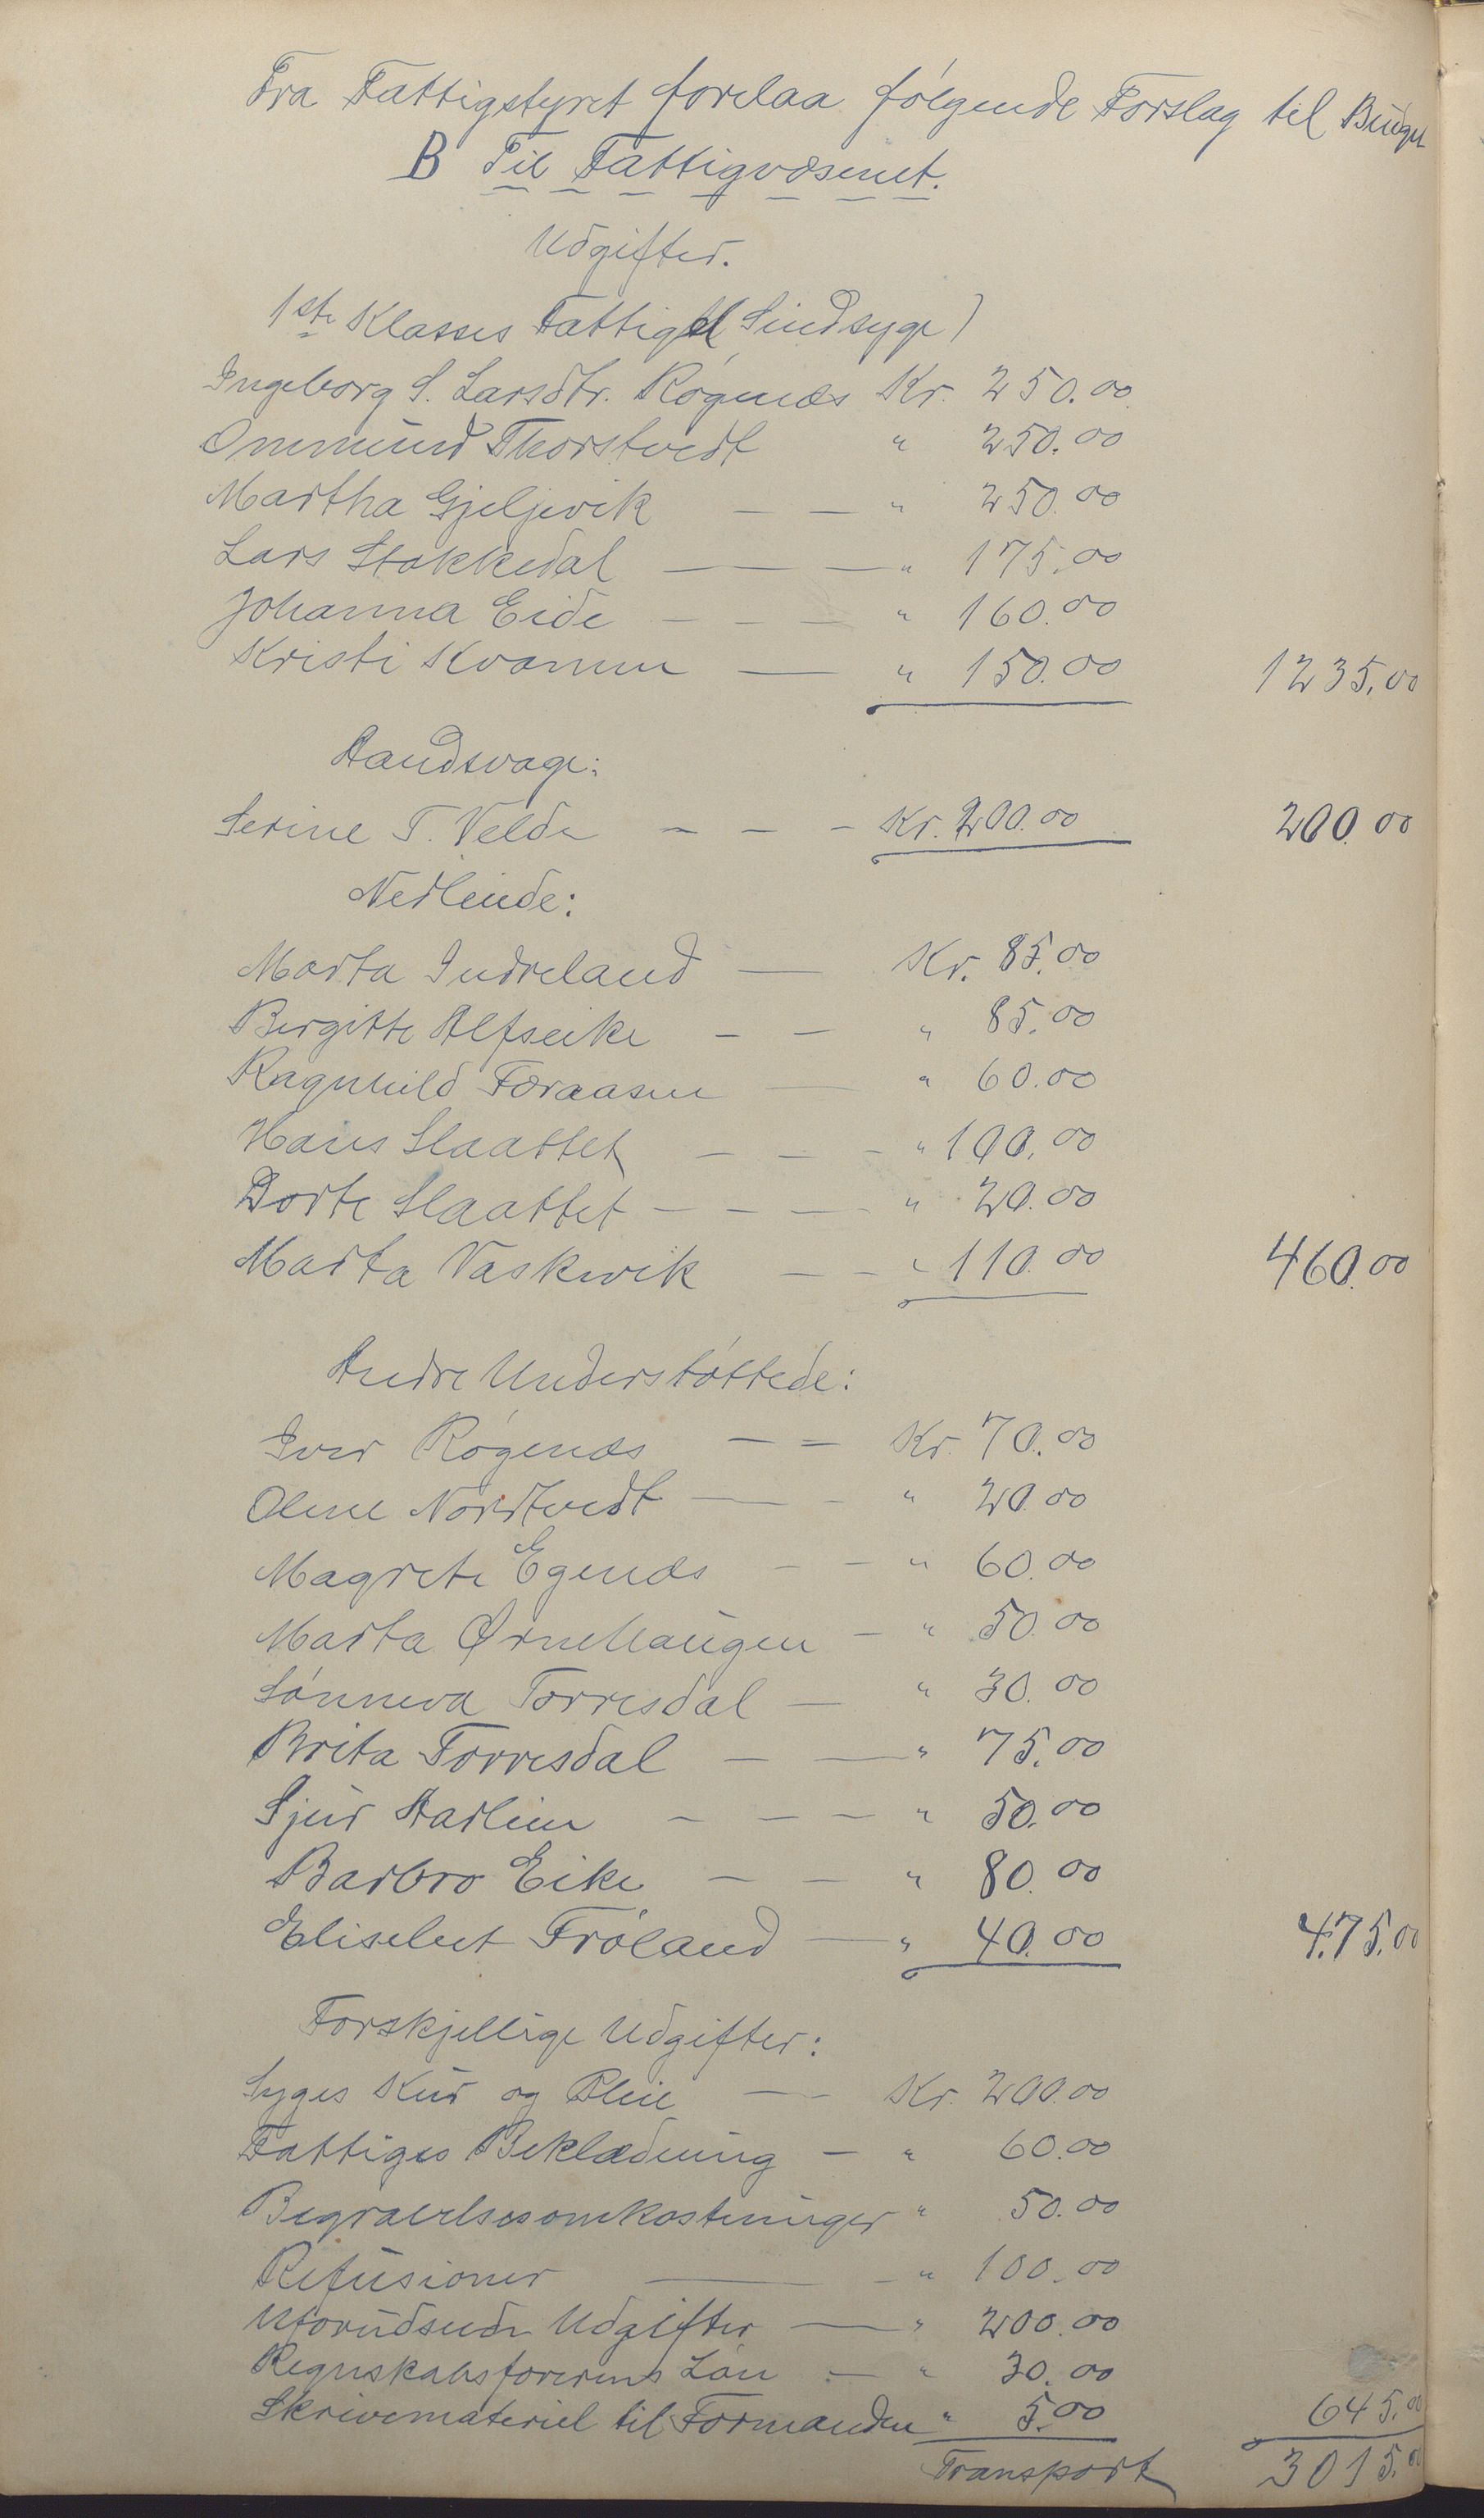 Fra Fattigstyret forelaa følgende Forslag til Budget
B Til Fattigvæsenet.
Udgifter.
1ste Klasses Fattige (Sindsyge)
Ingeborg S. Larsdtr. Røgenæs Kr. 250.00
Ommund Thorstvedt " 250.00
Martha Gjeljevik — — " 250.00
Lars Stokkedal — — — " 175.00
Johanna Eide — — — " 160.00
Kristi Kvamm — " 150.00 1235.00
Aandsvage:
Serine T. Velde — — — Kr. 200.00 200.00
Vedleide:
Marta Indreland — Kr. 85.00
Bergitte Alfseike — — " 85.00
Ragnhild Føraasen — " 60.00
Hans Slaattet — — — " 100.00
Dorte Slaattet — — — — " 20.00
Marta Vaskevik — — — " 110.00 460.00
Andre Understøttede:
Iver Røgenæs — — Kr. 70.00
Olene Nordtvedt — — " 20.00
Magrete Egenæs — — " 60.00
Marta Ørnehaugen — " 50.00
Sønneva Torresdal — " 30.00
Brita Torresdal — — " 75.00
Sjur Aarlien — — — " 50.00
Barbro Eike — — " 80.00
Elisebet Frøland — " 40.00 475.00
Forskjellige Udgifter:
Syges Kur og Pleie — Kr. 200.00
Fattiges Beklædning — " 60.00
Begravelsesomkostninger " 50.00
Refusioner — — " 100.00
Uforudseede Udgifter — " 200.00
Regnskabsførerens Løn — " 30.00
Skrivemateriel til Formanden " 5.00 645.00
Transport 3015.00